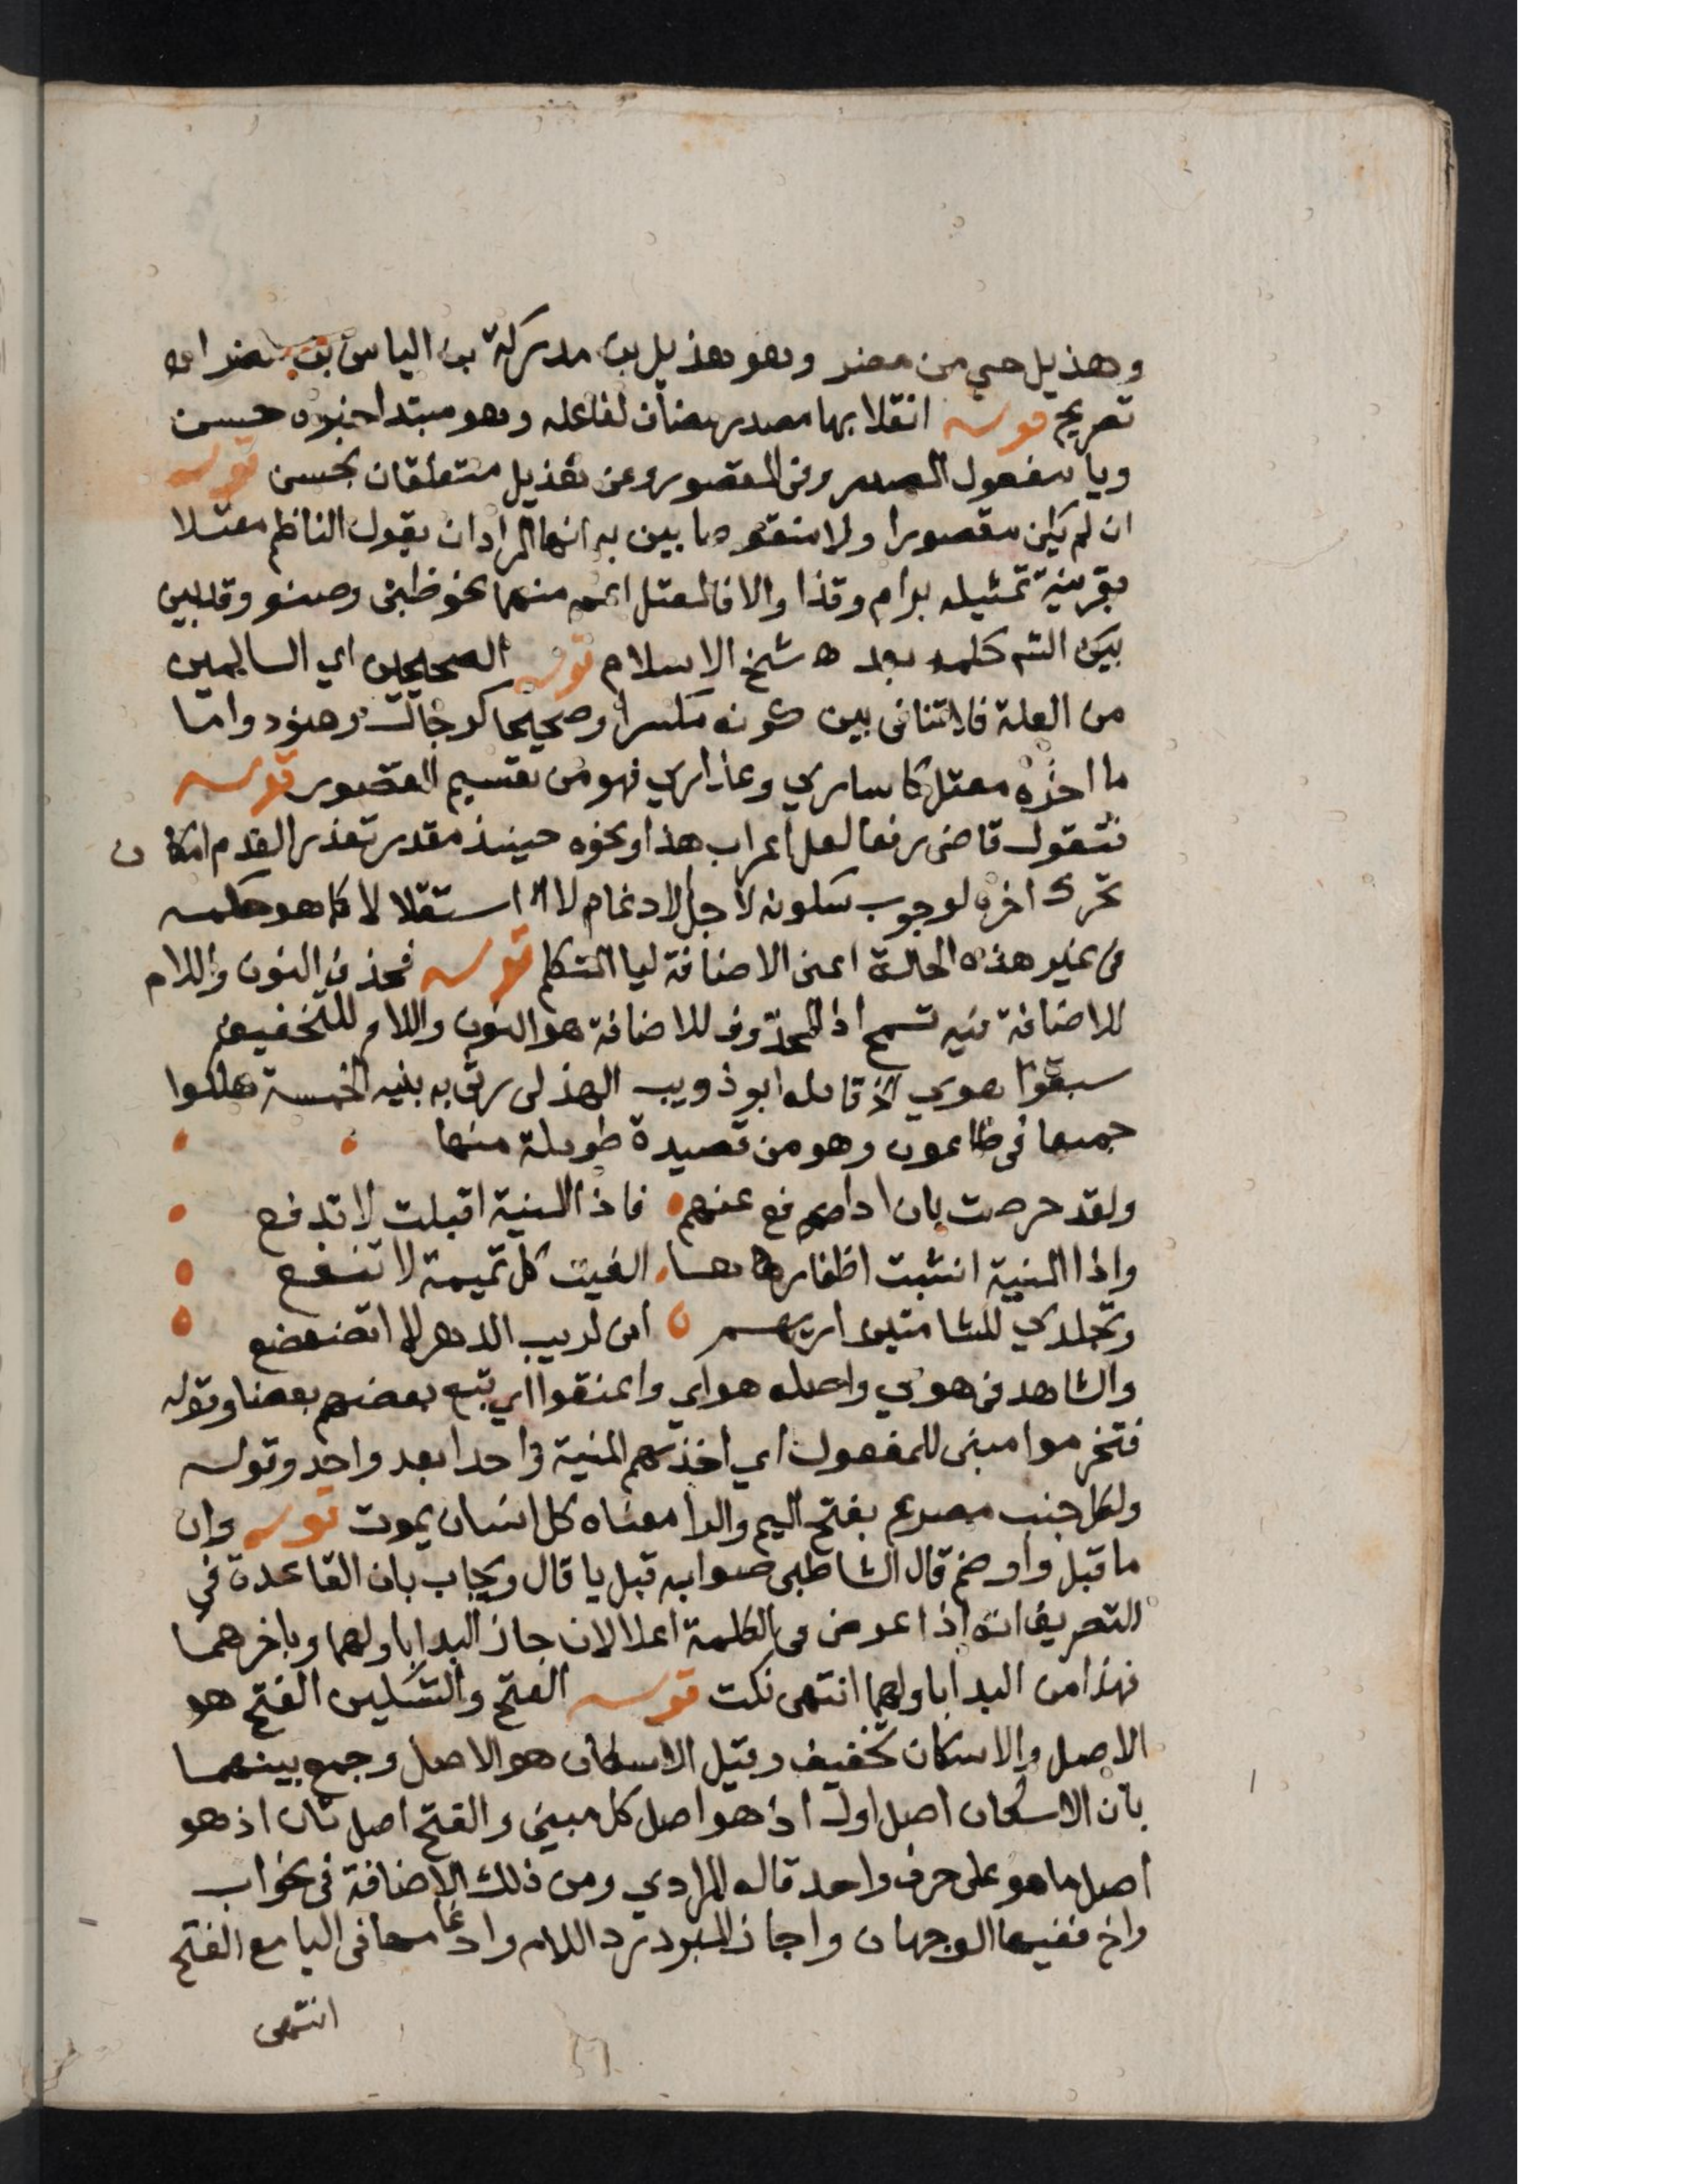 وهذيل حي من مضر وهو هذيل بن مدركة بن الياس بن مضر اه
تصريح قوله انقلابها مصدر مضاف لفاعله وهو مبتدا خبره حسن
ويا مفعول المصدر وفي المقصور وعن هذيل متعلقان بحسن قوله
ان لم يكن مقصورا ولا منقوصا بين به انهما المراد ان بقول الناظم معتلا
بقرينة تمثيله برام وقذا والا فالمعتل اعم منهما نحو ظبي وصنو وقد بين
بيكن الثم كلمه بعد ه شيخ الاسلام قوله الصحيحين اي السالمين
من العلة فلا تنافى بين كونه مكسرا وصحيحا كرجال وهنود واما
ما اخره معتل كاسارى وعذارى فهو من تقسيم المقصور قوله
فتقول قاضي رفعا لعل اعراب هذا ونحوه حينئذ مقدر تعذر القدم امكان
تحرك اخره لوجوب سكونه لاجل الادغام لا استقلالا كما هو حكمه
في غير هذه الحالة اعني الاضافة ليا المتكلم قوله فحذف النون واللام
للاضافة فيه تسمح اذ المحذوف للاضافة هو النون واللام للتخفيف
سبقوا هوي الخ قاله ابو ذويب الهذلي رثى به بنيه الخمسة هلكوا
جميعا في طاعون وهو من قصيدة طويلة منها
ولقد حرصت بان ادافع عنهم فاذا المنية اقبلت لا تدفع
واذا المنية انشبت اظفارها الفيت كل تميمة لا تنفع
وتجلدي للشامتين اريهم انى لريب الدهر لا اتضعضع
والشاهد في هوي واصله هواي واعنقوا اي تبع بعضهم بعضا وقوله
فتخرموا مبني للمفعول اي اخذتهم المنية واحدا بعد واحد وقوله
ولكل جنب مصرع بفتح الميم والرا معناه كل انسان يموت قوله وان
ما قبل واو ضم قال الشاطبي صوابه قبل يا قال ويجاب بان القاعدة في
التصريف انه اذا عرض في الكلمة اعلالان جاز البدا باولهما وباخرهما
فهذا من البدا باولهما انتهى نكت قوله الفتح والتسكين الفتح هو
الاصل والاسكان تخفيف وقيل الاسكان هو الاصل وجمع بينهما
بان الاسكان اصل اول اذ هو اصل كل مبني والفتح اصل ثان اذ هو
اصل ما هو على حرف واحد قاله المرادي ومن ذلك الاضافة في نحو اب
واخ ففيها الوجهان واجاز المبرد رد اللام وادغامها في اليا مع الفتح
انتهى